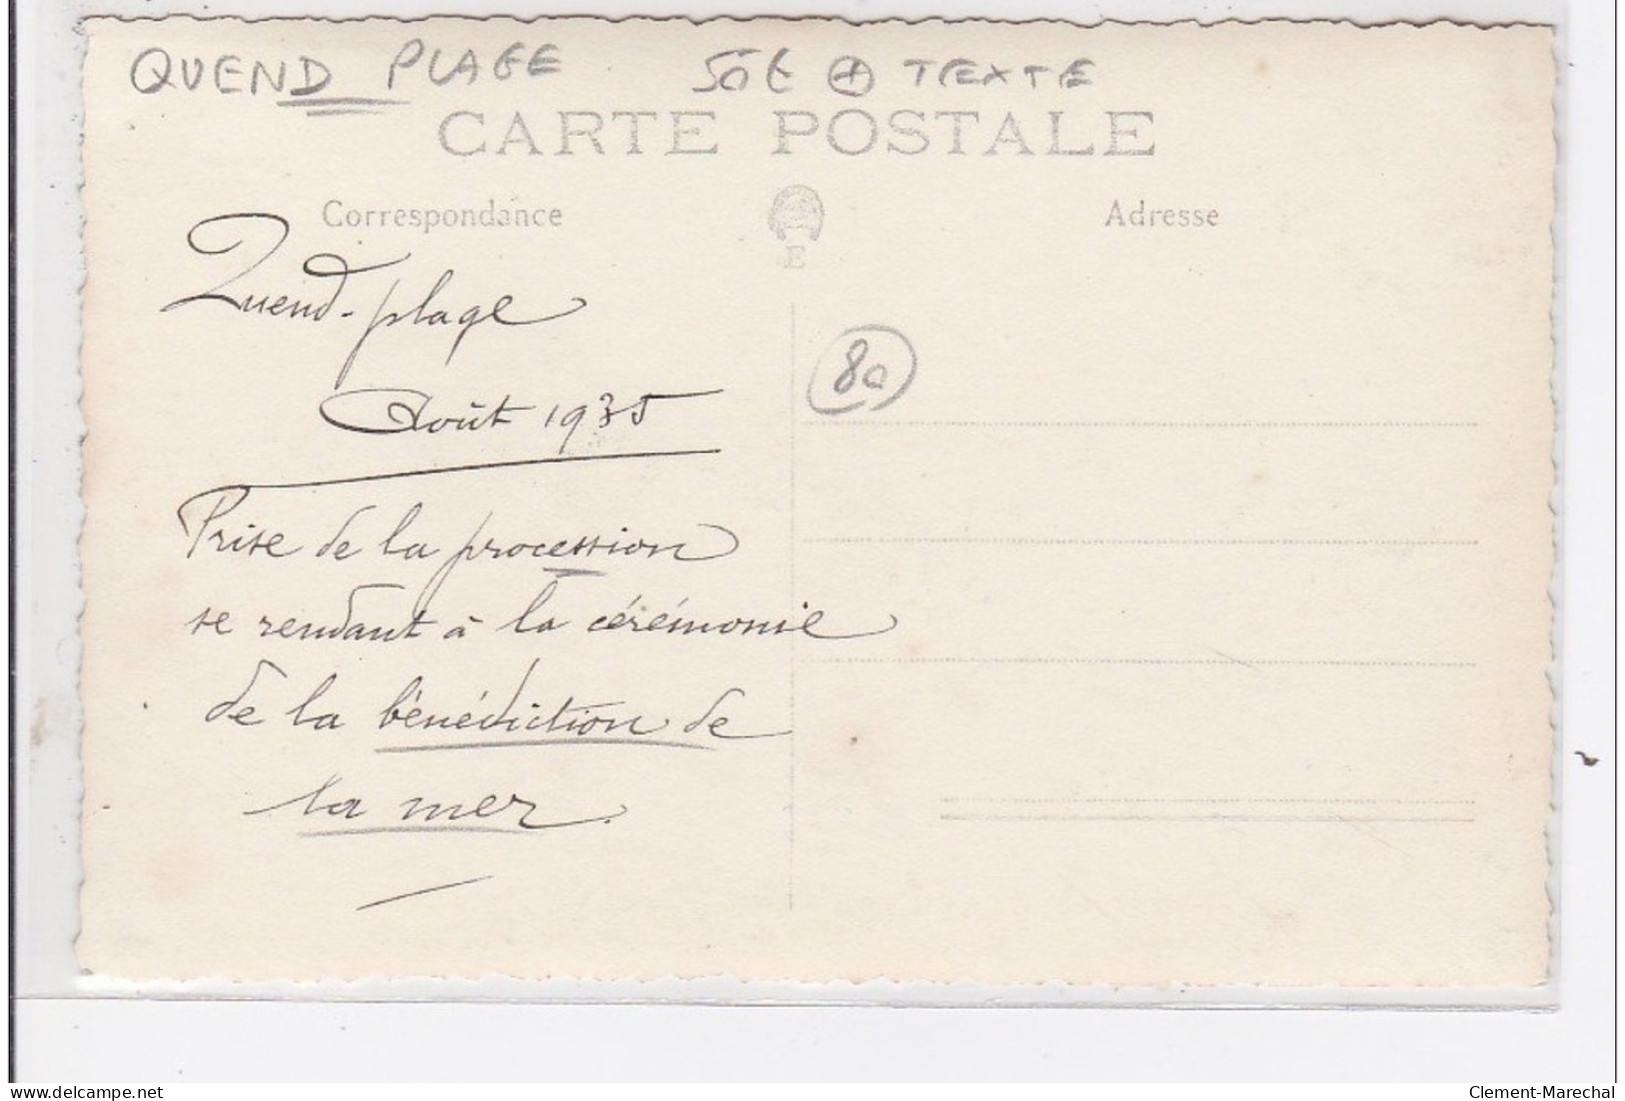 QUEND PLAGE 50€ + TEXTE
CARTE POSTALE
Correspondance
Adresse
E
Quend-plage
Août 1935
80
Prise de la procession
se rendant à la cérémonie
de la bénédiction de
la mer.
delcampe.net
Clement-Marechal